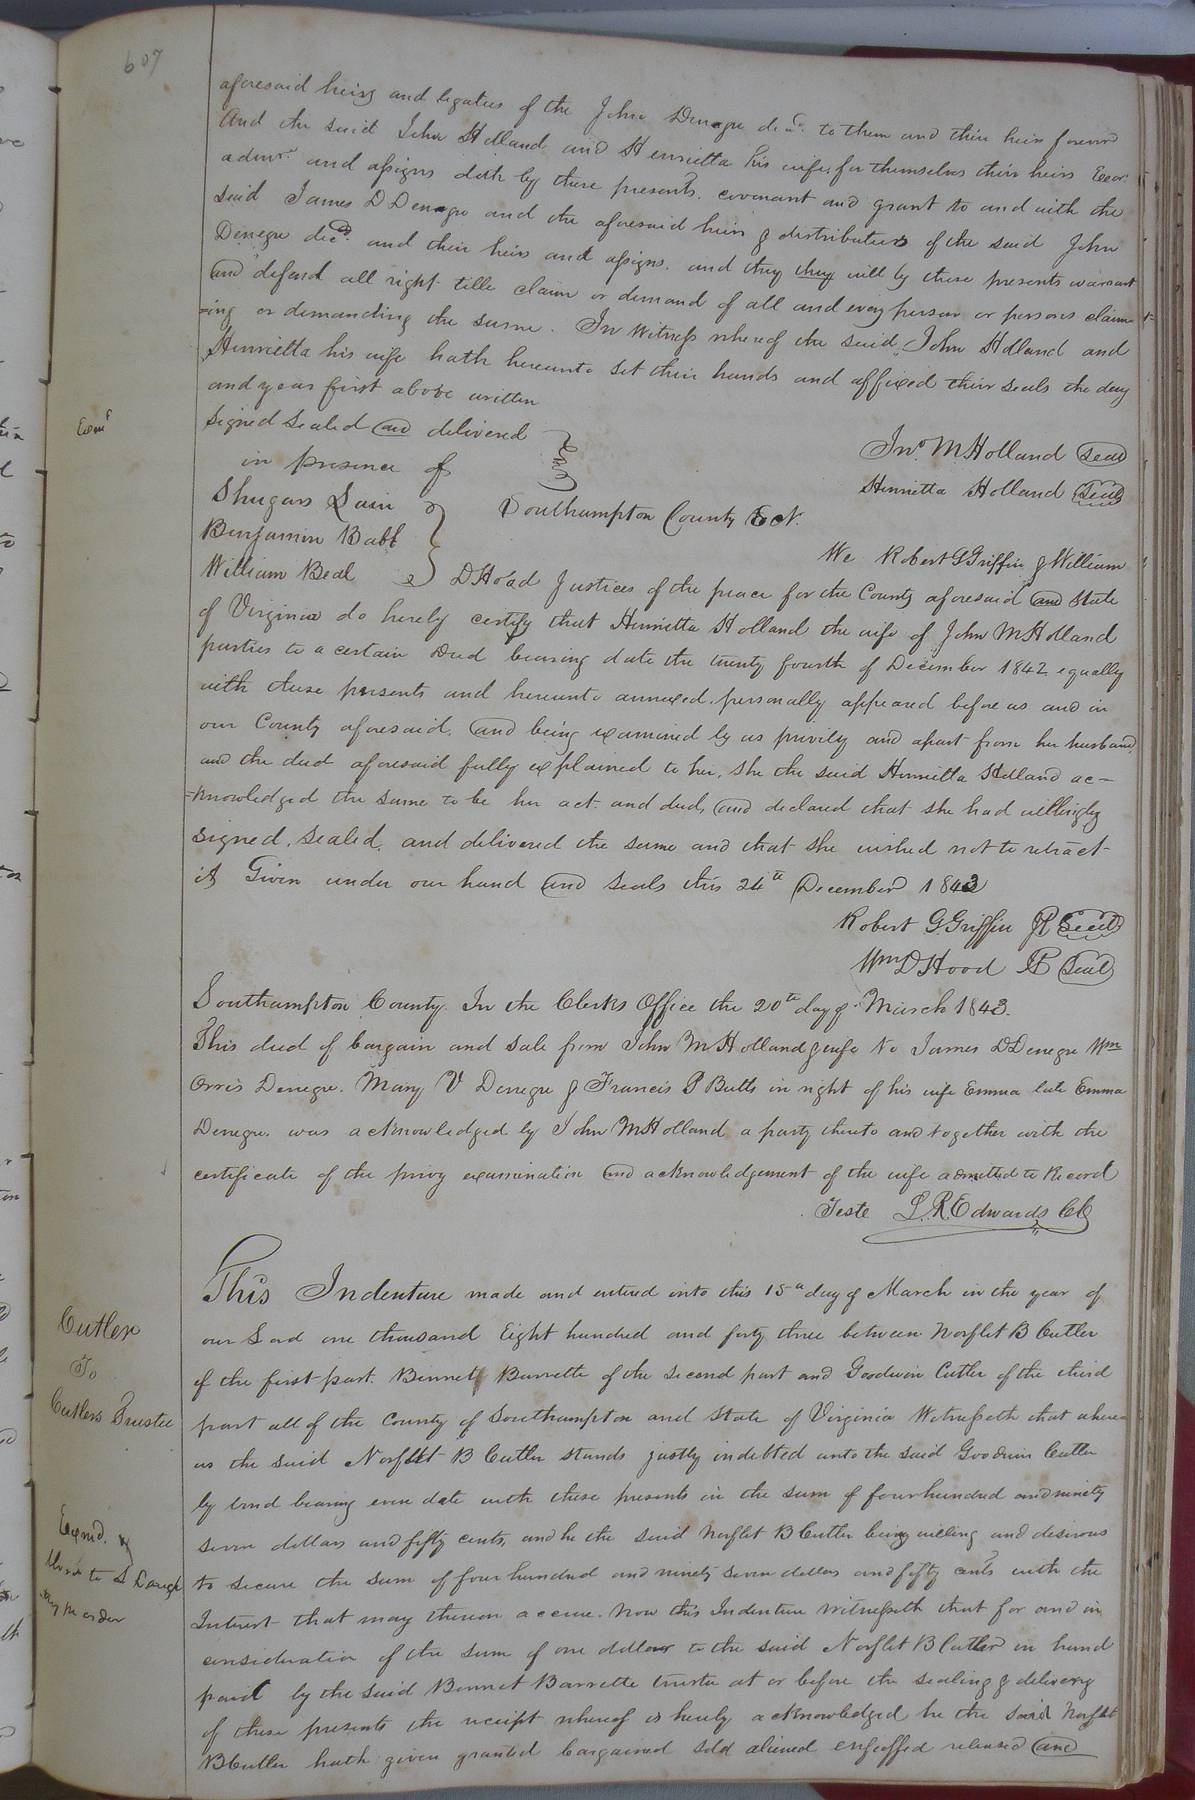 607
aforesaid heirs and legatees of the John Denegre decd. to them and their heirs forever
And the said John Holland and Henrietta his wife, for themselves their heirs Exor.
admr. and assigns doth by these presents. covenant and grant to and with the
said James D Denegre and the aforesaid heirs & distributees of the said John
Denegre decd. and their heirs and assigns. and they they will by these presents warrant
and defend all right title claim or demand of all and every person or persons claim-
-ing or demanding the same. In Witness whereof the said John Holland and
Henrietta his wife hath hereunto set their hands and affixed their seals the day
and year first above written
Exmd
signed sealed and delivered
in presence of
Jno. M Holland Seal
Henrietta Holland Seal
Shugars Lain
Benjamin Babb
William Beal
Southampton County to wit.
We Robert G Griffin & William
D Hood Justices of the peace for the County aforesaid and State
of Virginia do hereby certify that Henrietta Holland the wife of John M Holland
parties to a certain Deed bearing date the twenty fourth of December 1842 equally
with these presents and hereunto annexed, personally appeared before us and in
our County aforesaid, and being examined by us privily and apart from her husband
and the deed aforesaid fully explained to her, She the said Henrietta Holland ac-
-knowledged the same to be her act and deed, and declared that she had willingly
signed, sealed, and delivered the same and that she wished not to retract
it Given under our hand and seals this 24th December 1842
Robert G. Griffin JP Seal
Wm D Hood JP Seal
Southampton County. In the Clerks Office the 20th day of March 1843.
This deed of bargain and sale from John M Holland & wife to James D Denegre Wm
Orris Denegre. Mary V Denegre & Francis P Butts in right of his wife Emma late Emma
Denegre. was acknowledged by John M Holland a party thereto and together with the
certificate of the privy examination and acknowledgement of the wife admitted to Record
Teste L. R. Edwards CC
Cutler
To
Cutlers Trustee
This Indenture made and entered into this 15th day of March in the year of
our Lord one thousand Eight hundred and forty three between Norflet B Cutler
of the first part. Bennet Barrette of the second part and Goodwin Cutler of the third
part all of the County of Southampton and State of Virginia Witnesseth that where-
as the said Norflet B Cutler stands justly indebted unto the said Goodwin Cutler
by bond bearing even date with these presents in the sum of four hundred and ninety
seven dollars and fifty cents, and he the said Norflet B Cutler being willing and desirous
to secure the sum of four hundred and ninety seven dollars and fifty cents with the
Interest that may thereon accrue. Now this Indenture witnesseth that for and in
consideration of the sum of one dollar to the said Norflet B Cutler in hand
paid by the said Bennet Barrette trustee at or before the sealing & delivery
of these presents the receipt whereof is hereby acknowledged he the said Norflet
B Cutler hath given granted bargained sold aliened enfeoffed released and
Exmd. &
to
order